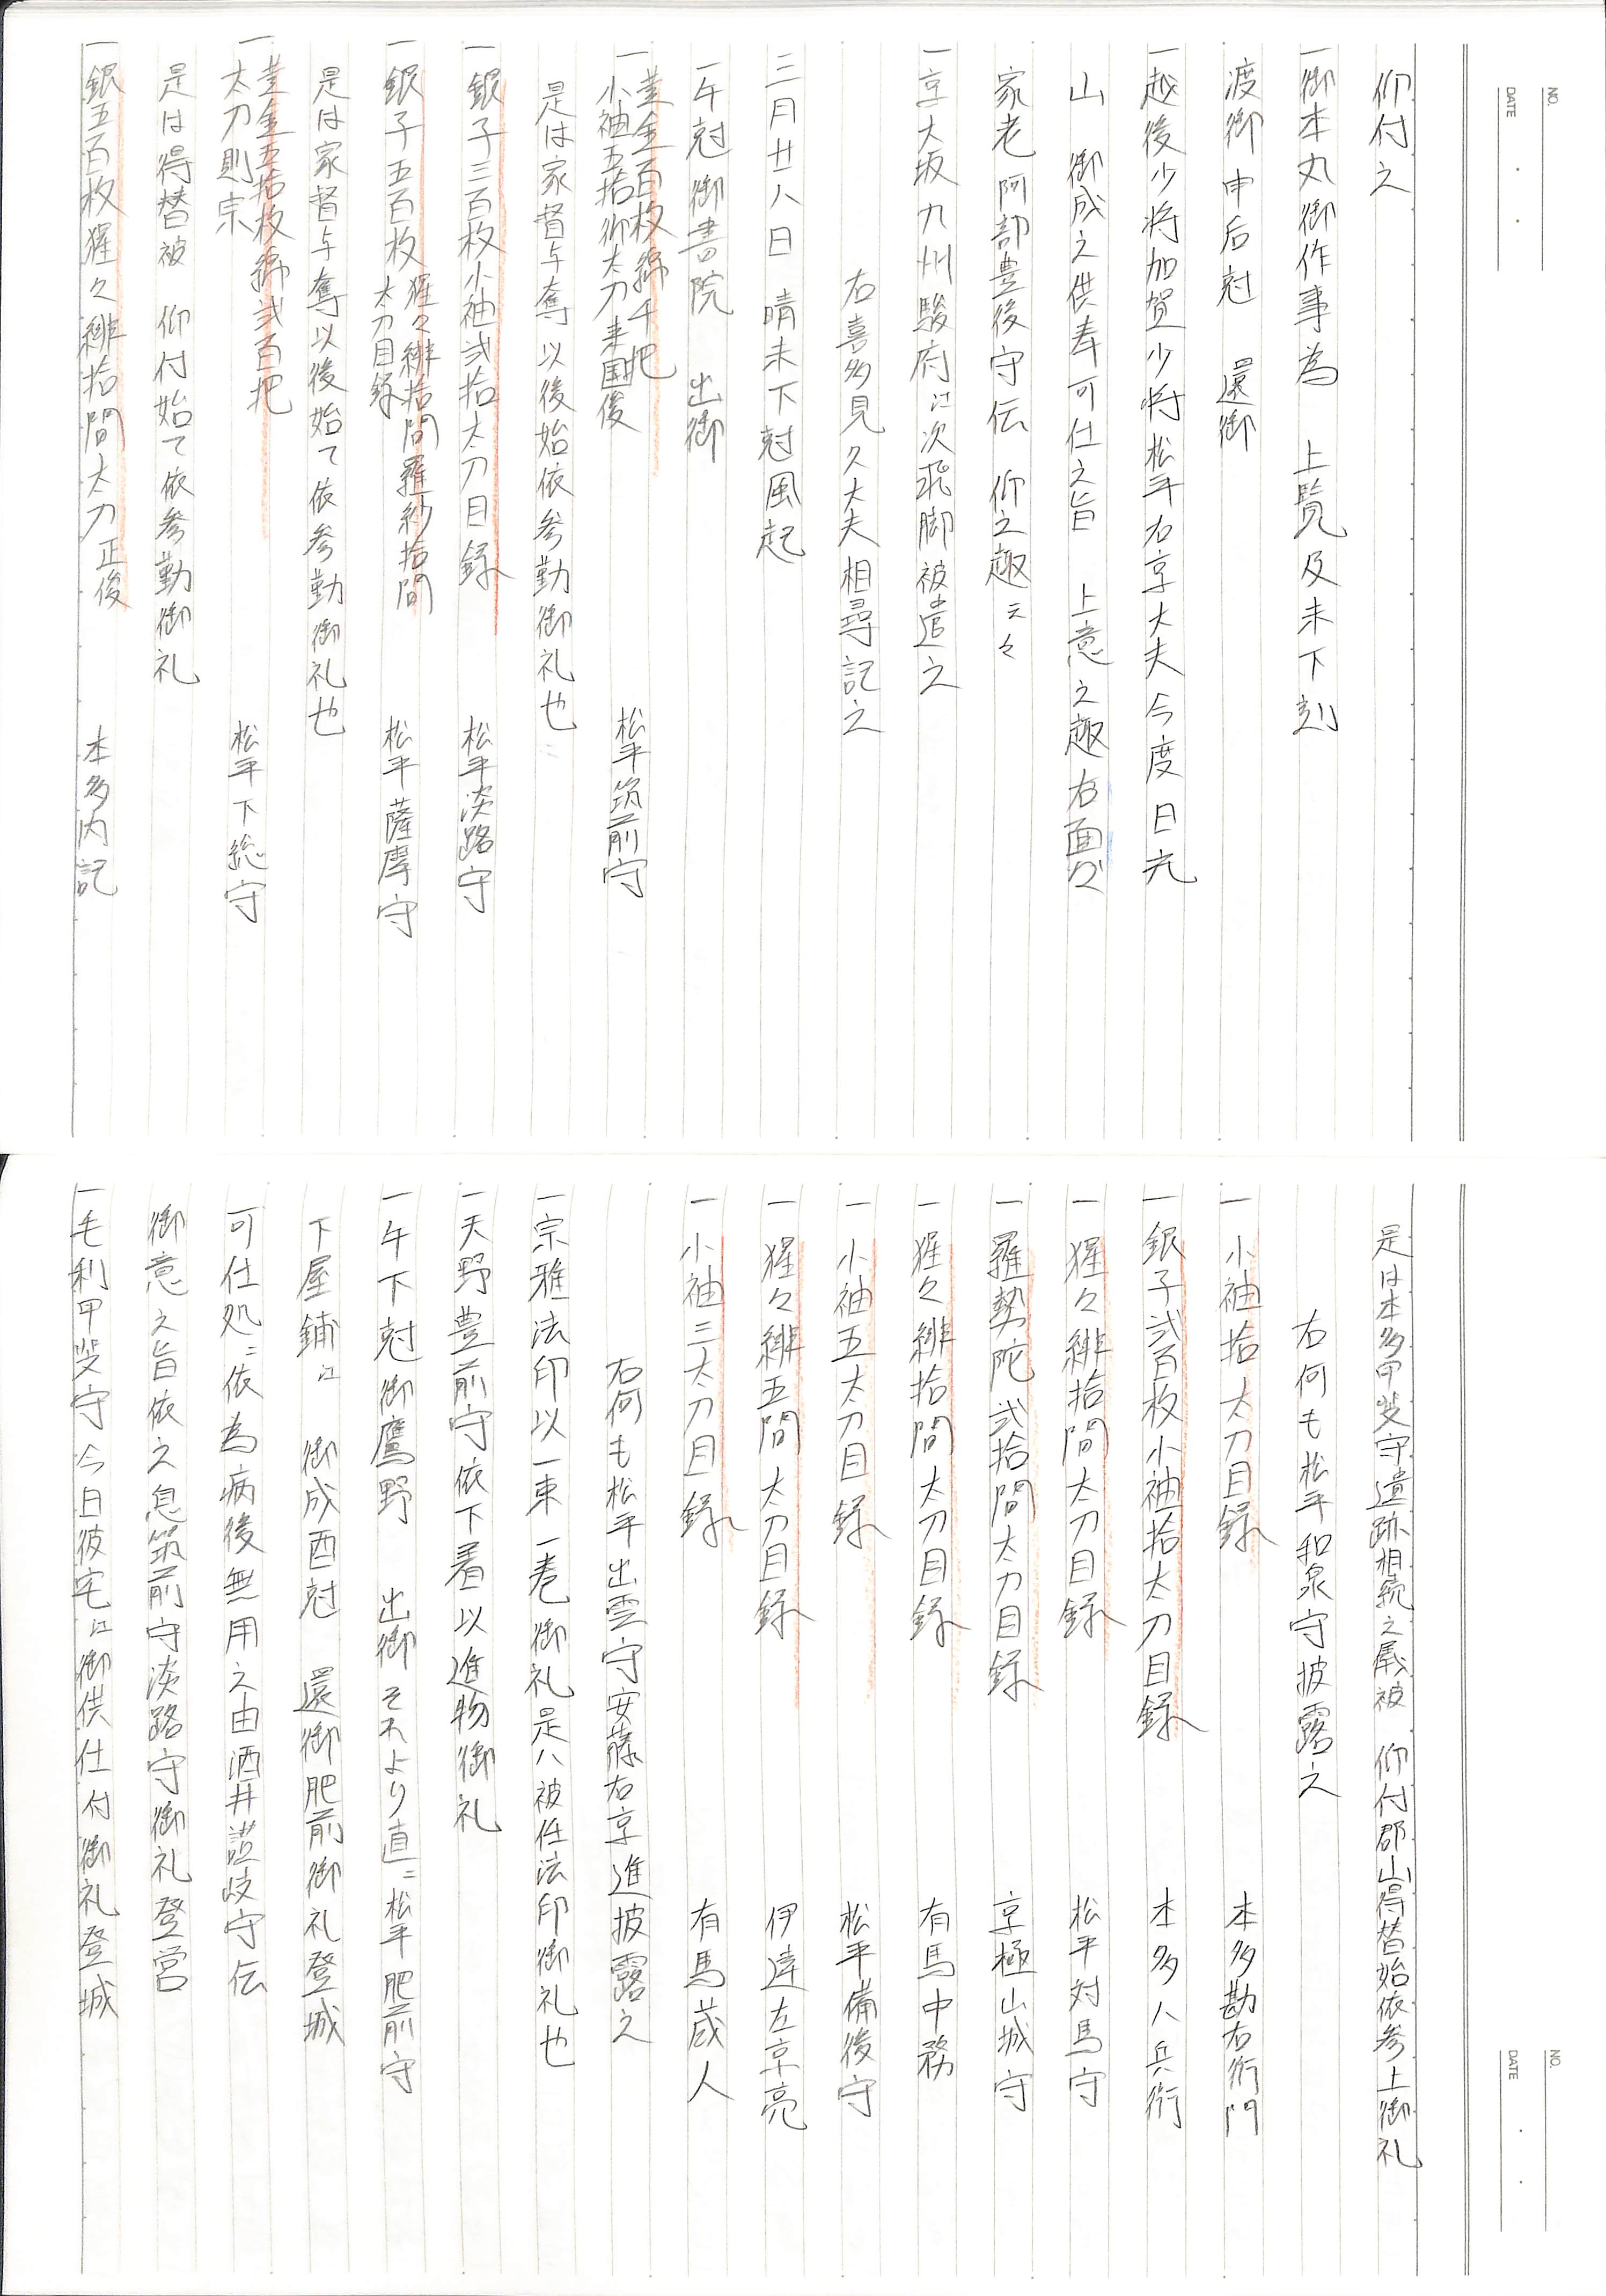 NO.
DATE
仰付之
一御本丸御作事為　上覧及未下刻
渡御申后尅　還御
一越後少将加賀少将松平右京大夫今度日光
山　御成之供奉可仕之旨　上意之趣右面〻
家老阿部豊後守伝　仰之趣云々
一京大坂九州駿府江次飛脚被遣之
右喜多見久大夫相尋記之
三月廿八日　晴未下尅風起
一午尅御書院　出御
一黄金百枚綿千把
小袖五拾御太刀来国俊　松平筑前守
是は家督与奪以後始依参勤御礼也
一銀子三百枚小袖弐拾太刀目録　松平淡路守
一銀子五百枚　猩々緋拾間羅紗拾間
太刀目録　松平薩摩守
是は家督与奪以後始て依参勤御礼也
一黄金五拾枚綿弐百把
太刀則宗　松平下総守
是は得替被　仰付始て依参勤御礼
一銀五百枚猩々緋拾間太刀正俊　本多内記
NO.
DATE
是は本多甲斐守遺跡相続之儀被　仰付郡山得替始依参上御礼
右何も松平和泉守披露之
一小袖拾太刀目録　本多勘右衛門
一銀子弐百枚小袖拾太刀目録　本多八兵衛
一猩々緋拾間太刀目録　松平対馬守
一羅勢陀弐拾間太刀目録　京極山城守
一猩々緋拾間太刀目録　有馬中務
一小袖五太刀目録　松平備後守
一猩々緋五間太刀目録　伊達左京亮
一小袖三太刀目録　有馬蔵人
右何も松平出雲守安藤右京進披露之
一宗雅法印以一束一巻御礼是ハ被任法印御礼也
一天野豊前守依下着以進物御礼
一午下尅御鷹野　出御それより直ニ松平肥前守
下屋鋪江　御成酉尅　還御肥前御礼登城
可仕処ニ依為病後無用之由酒井讃岐守伝
御意之旨依之息筑前守淡路守御礼登営
一毛利甲斐守今日彼宅江御供仕付御礼登城